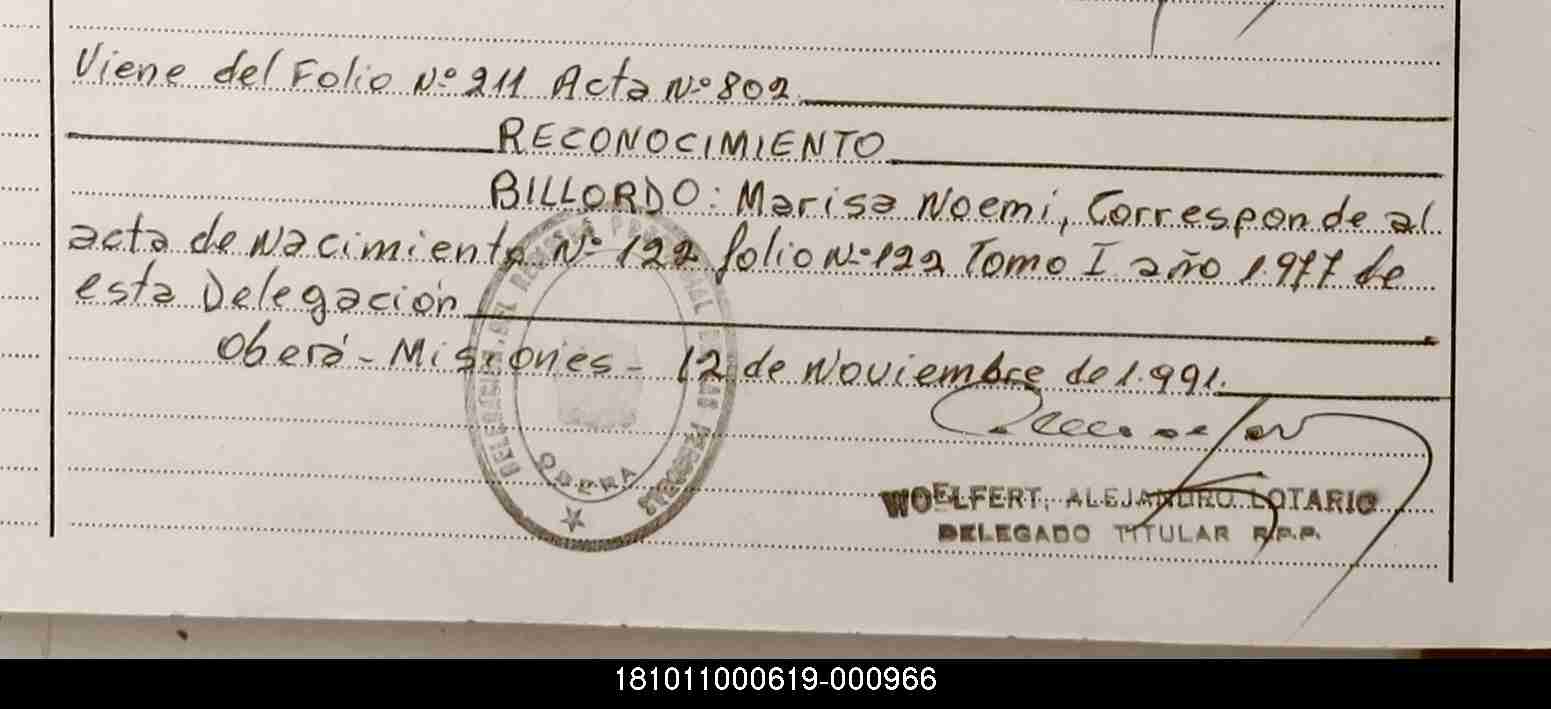 Viene del Folio Nº 211 Acta Nº 802
RECONOCIMIENTO
BILLORDO: Marisa Noemi, Corresponde al
acta de Nacimiento Nº 122 folio Nº 122 Tomo I año 1.977 de
esta Delegación
Oberá - Misiones - 12 de Noviembre de 1.991.
DELEGACION DEL REGISTRO PROVINCIAL DE LAS PERSONAS
OBERA
WOELFERT, ALEJANDRO LOTARIO
DELEGADO TITULAR R.P.P.
181011000619-000966